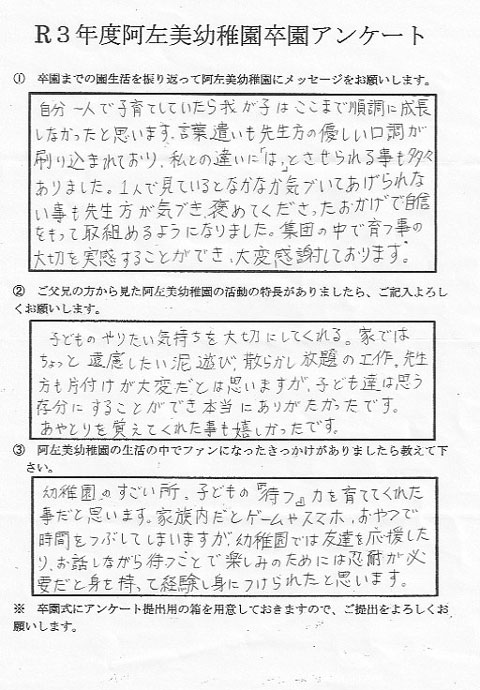 R3年度阿左美幼稚園卒園アンケート
① 卒園までの園生活を振り返って阿左美幼稚園にメッセージをお願いします。
自分一人で子育てしていたら我が子はここまで順調に成長
しなかったと思います。言葉遣いも先生方の優しい口調が
刷り込まれており、私との違いに「は、」とさせられる事も多々
ありました。1人で見ているとなかなか気づいてあげられな
い事も先生方が気づき、褒めてくださったおかげで自信
をもって取組めるようになりました。集団の中で育つ事の
大切を実感することができ、大変感謝しております。
② ご父兄の方から見た阿左美幼稚園の活動の特長がありましたら、ご記入よろし
くお願いします。
子どものやりたい気持ちを大切にしてくれる。家では
ちょっと遠慮したい泥遊び、散らかし放題の工作。先生
方も片付けが大変だとは思いますが、子ども達は思う
存分にすることができ本当にありがたかったです。
あやとりを覚えてくれた事も嬉しかったです。
③ 阿左美幼稚園の生活の中でファンになったきっかけがありましたら教えて下
さい。
幼稚園のすごい所、子どもの『待つ』力を育ててくれた
事だと思います。家族内だとゲームやスマホ、おやつで
時間をつぶしてしまいますが、幼稚園では友達を応援した
り、お話しながら待つことで楽しみのためには忍耐が必
要だと身を持って経験し身につけられたと思います。
※ 卒園式にアンケート提出用の箱を用意しておきますので、ご提出をよろしくお
願いします。